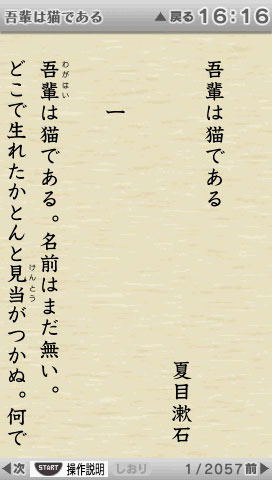 吾輩は猫である
▲戻る 16:16
吾輩は猫である
夏目漱石
一
吾輩は猫である。名前はまだ無い。
わがはい
どこで生れたかとんと見当がつかぬ。何で
けんとう
◀次 START 操作説明 しおり 1/2057前▶